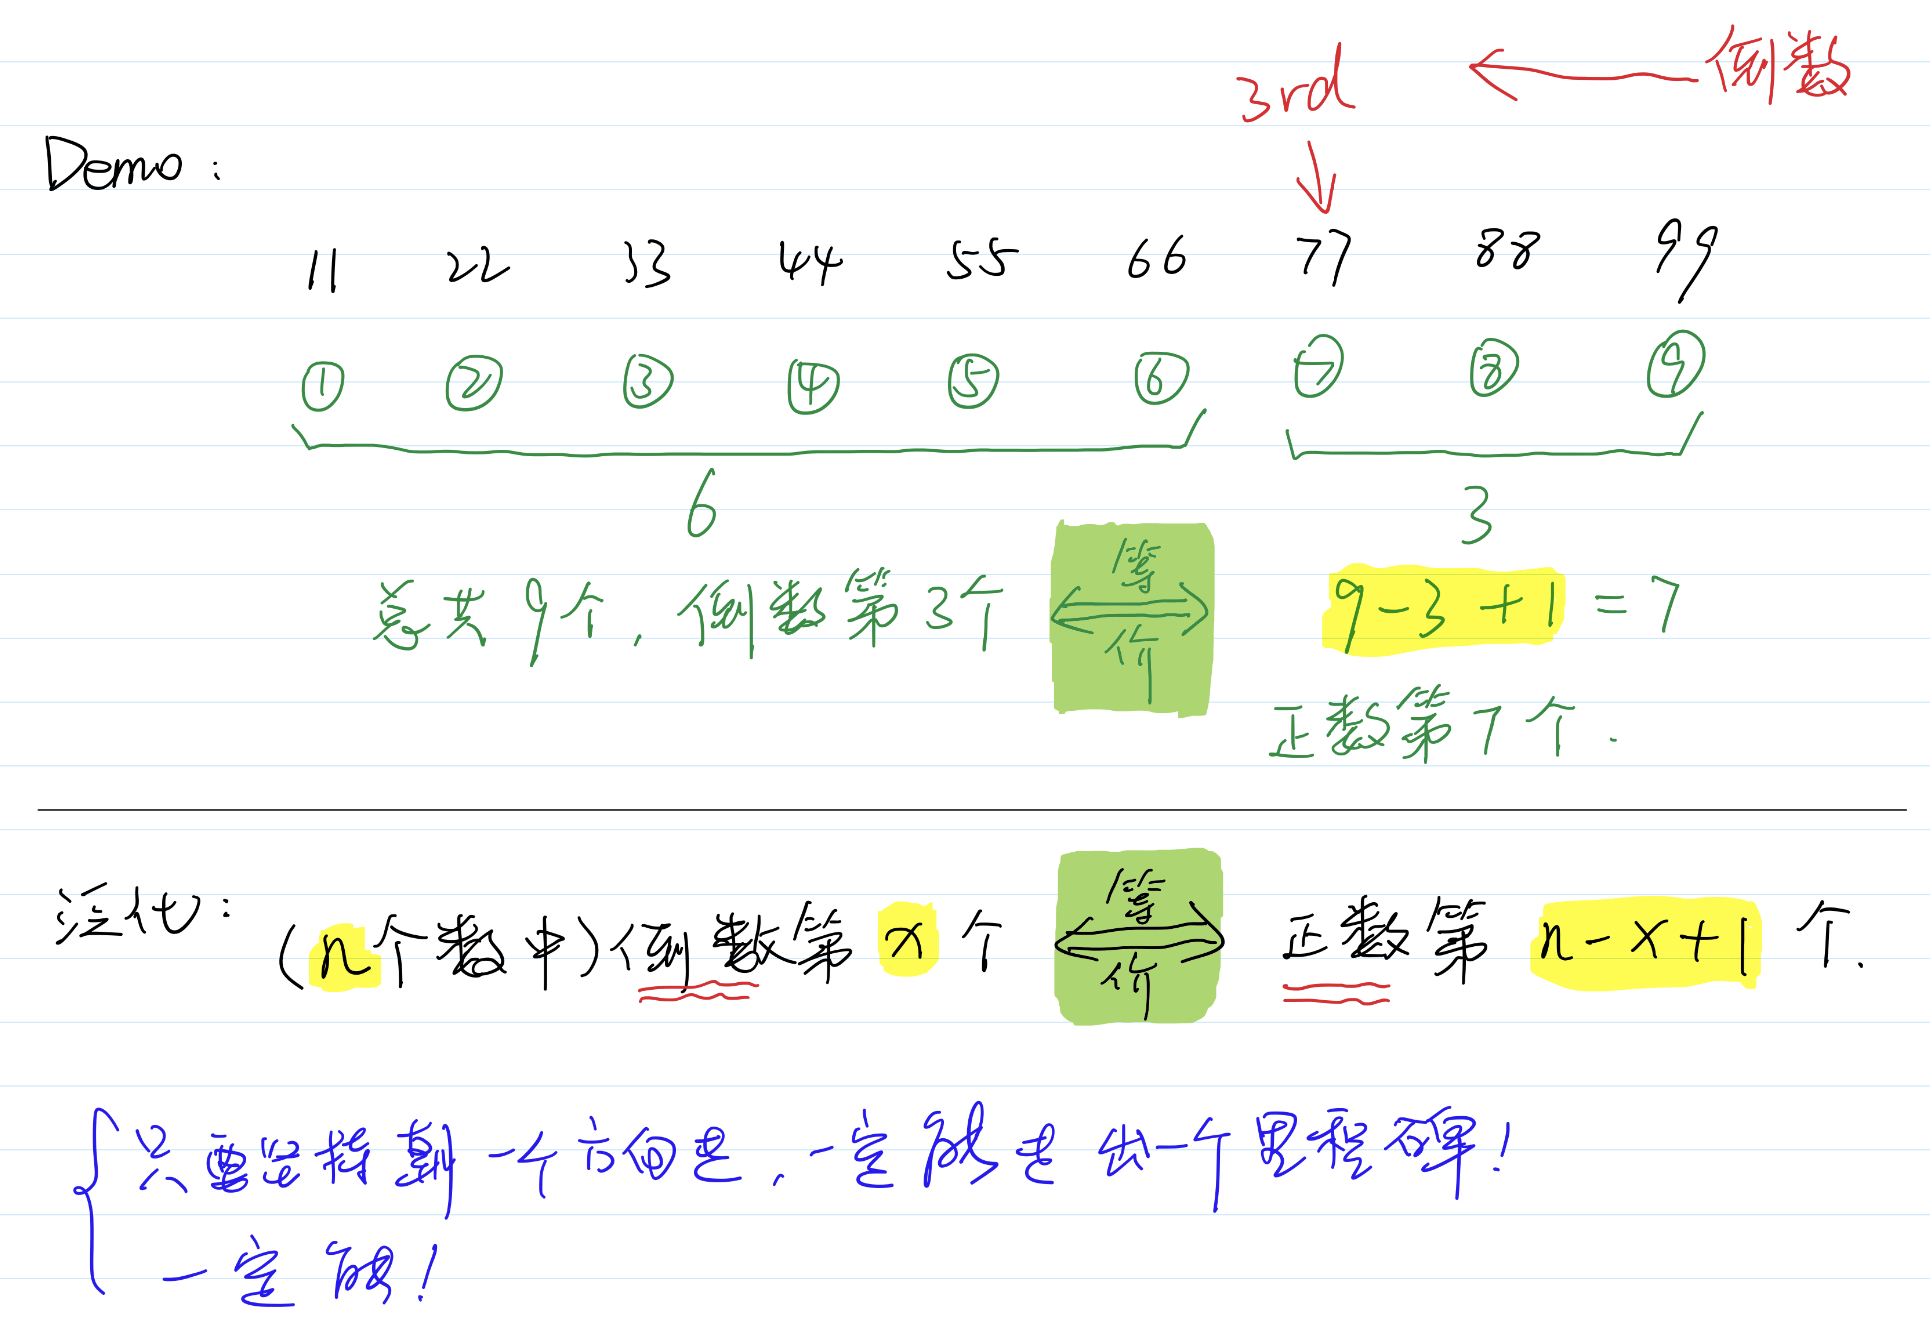 3rd ← 倒数
Demo:
↓
11 22 33 44 55 66 77 88 99
① ② ③ ④ ⑤ ⑥ ⑦ ⑧ ⑨
6 3
总共9个,倒数第3个 等价 9-3+1=7
正数第7个.
泛化: (n个数中)倒数第x个 等价 正数第n-x+1个.
只要坚持朝一个方向走,一定能走出一个里程碑!
一定能!